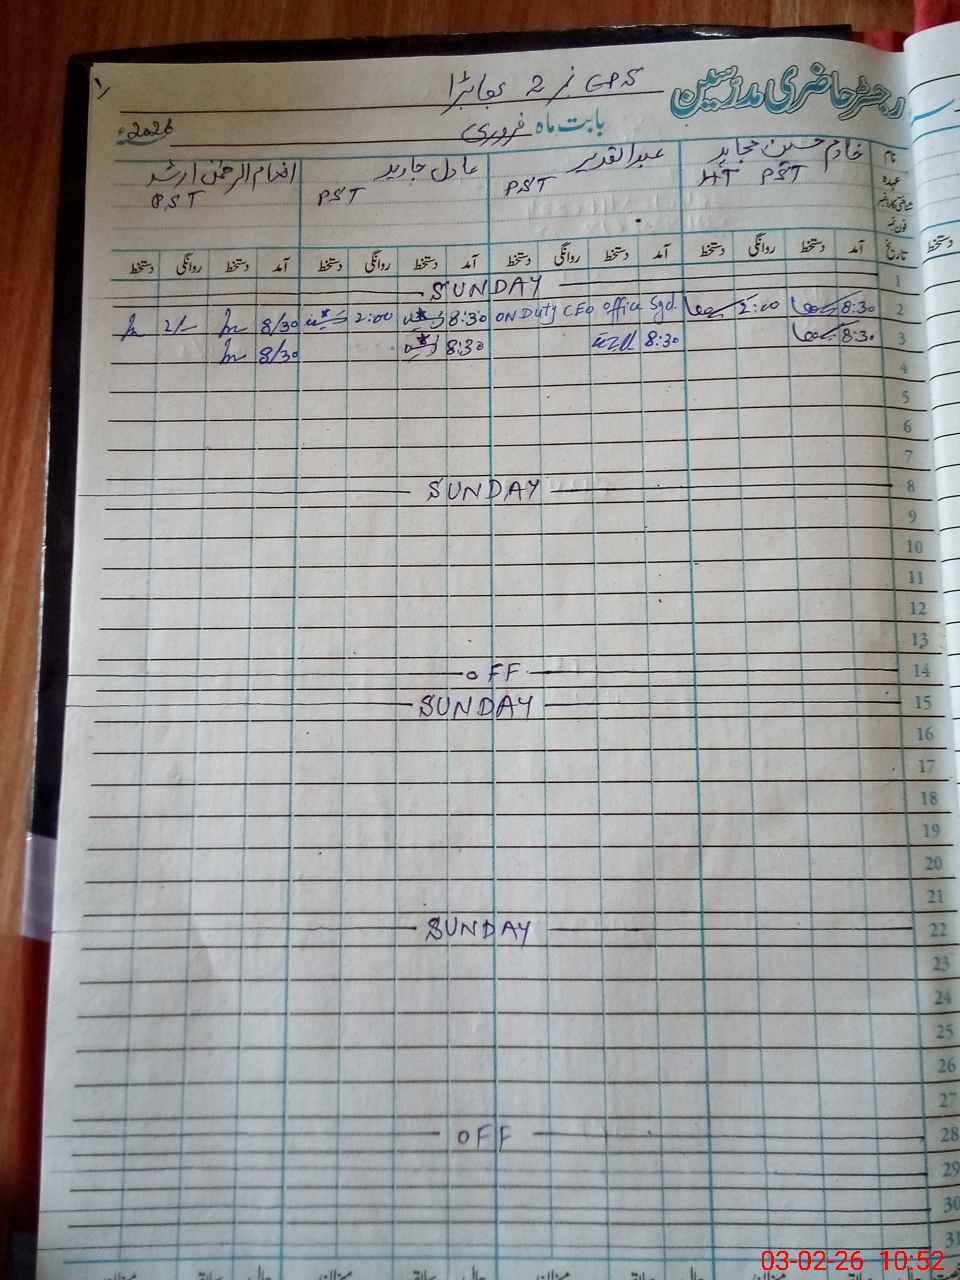 رجسٹر حاضری مدرسین GPS نمبر 2 بھابڑا
بابت ماہ فروری 2026ء
نام خادم حسین مجاہد عبدالقدیر عادل جاوید انعام الرحمٰن ارشد
عہدہ HT PST PST PST PST
شناختی کارڈ نمبر
فون نمبر
تاریخ آمد دستخط روانگی دستخط آمد دستخط روانگی دستخط آمد دستخط روانگی دستخط آمد دستخط روانگی دستخط
1 SUNDAY
2 8:30 2:00 ON Duty CEO office Sgd. 8:30 2:00 8/30 2/-
3 8:30 8:30 8:30 8/30
4
5
6
7
8 SUNDAY
9
10
11
12
13
14 OFF
15 SUNDAY
16
17
18
19
20
21
22 SUNDAY
23
24
25
26
27
28 OFF
29
30
31
03-02-26 10:52